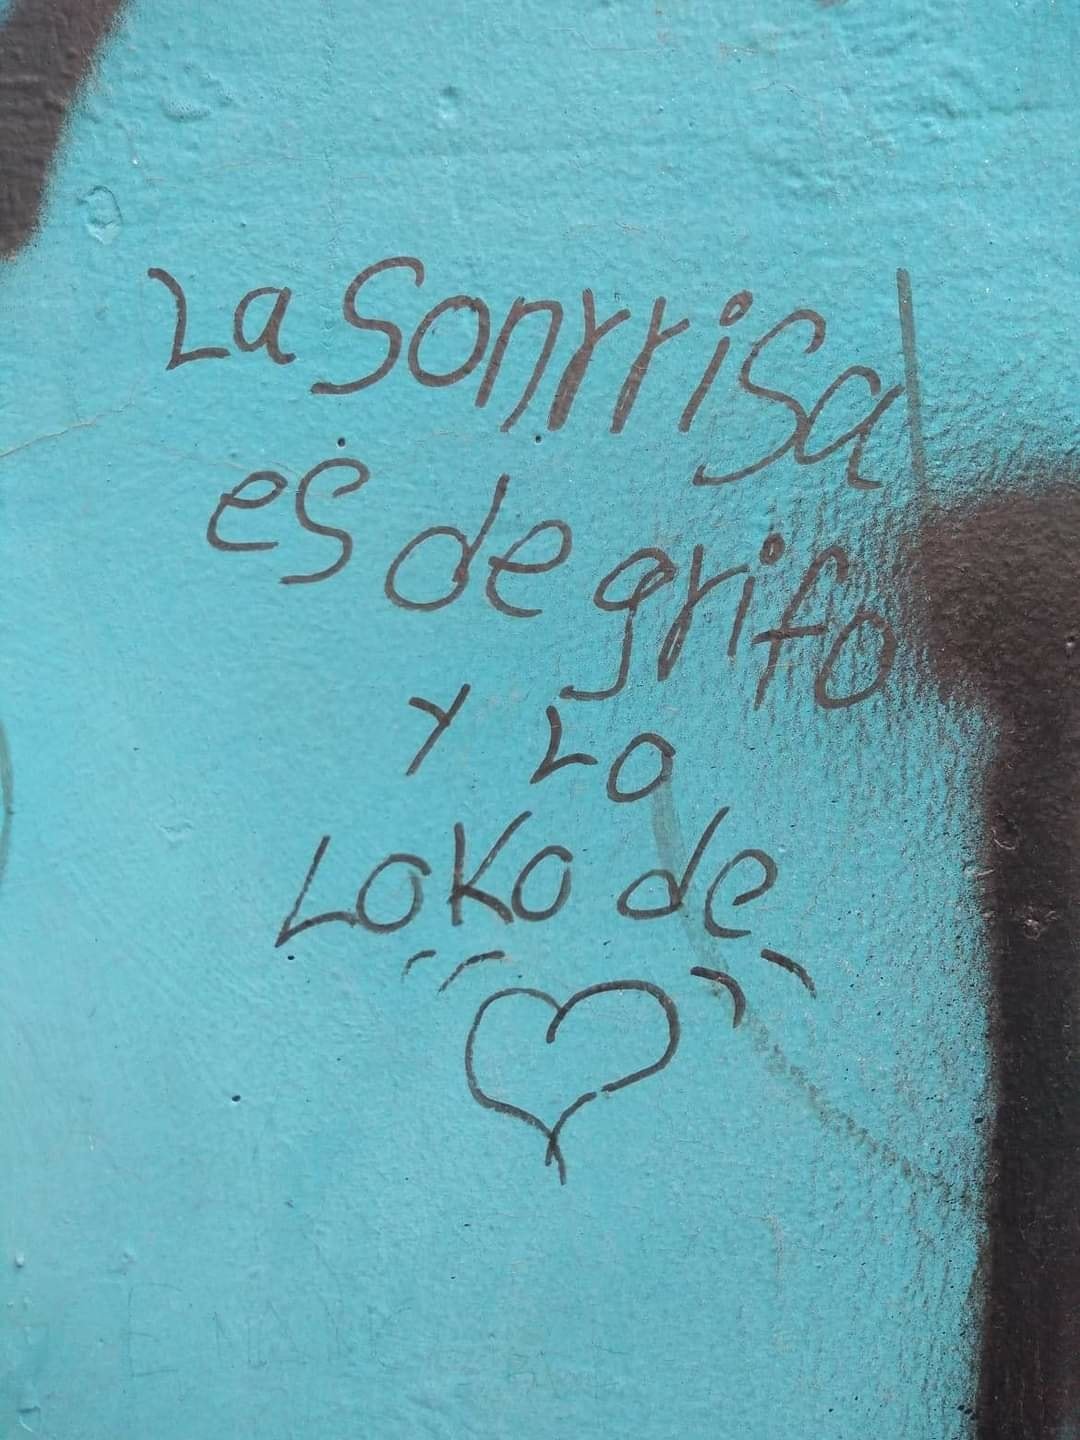 La Sonrrisa
es de grifo
y Lo
Loko de